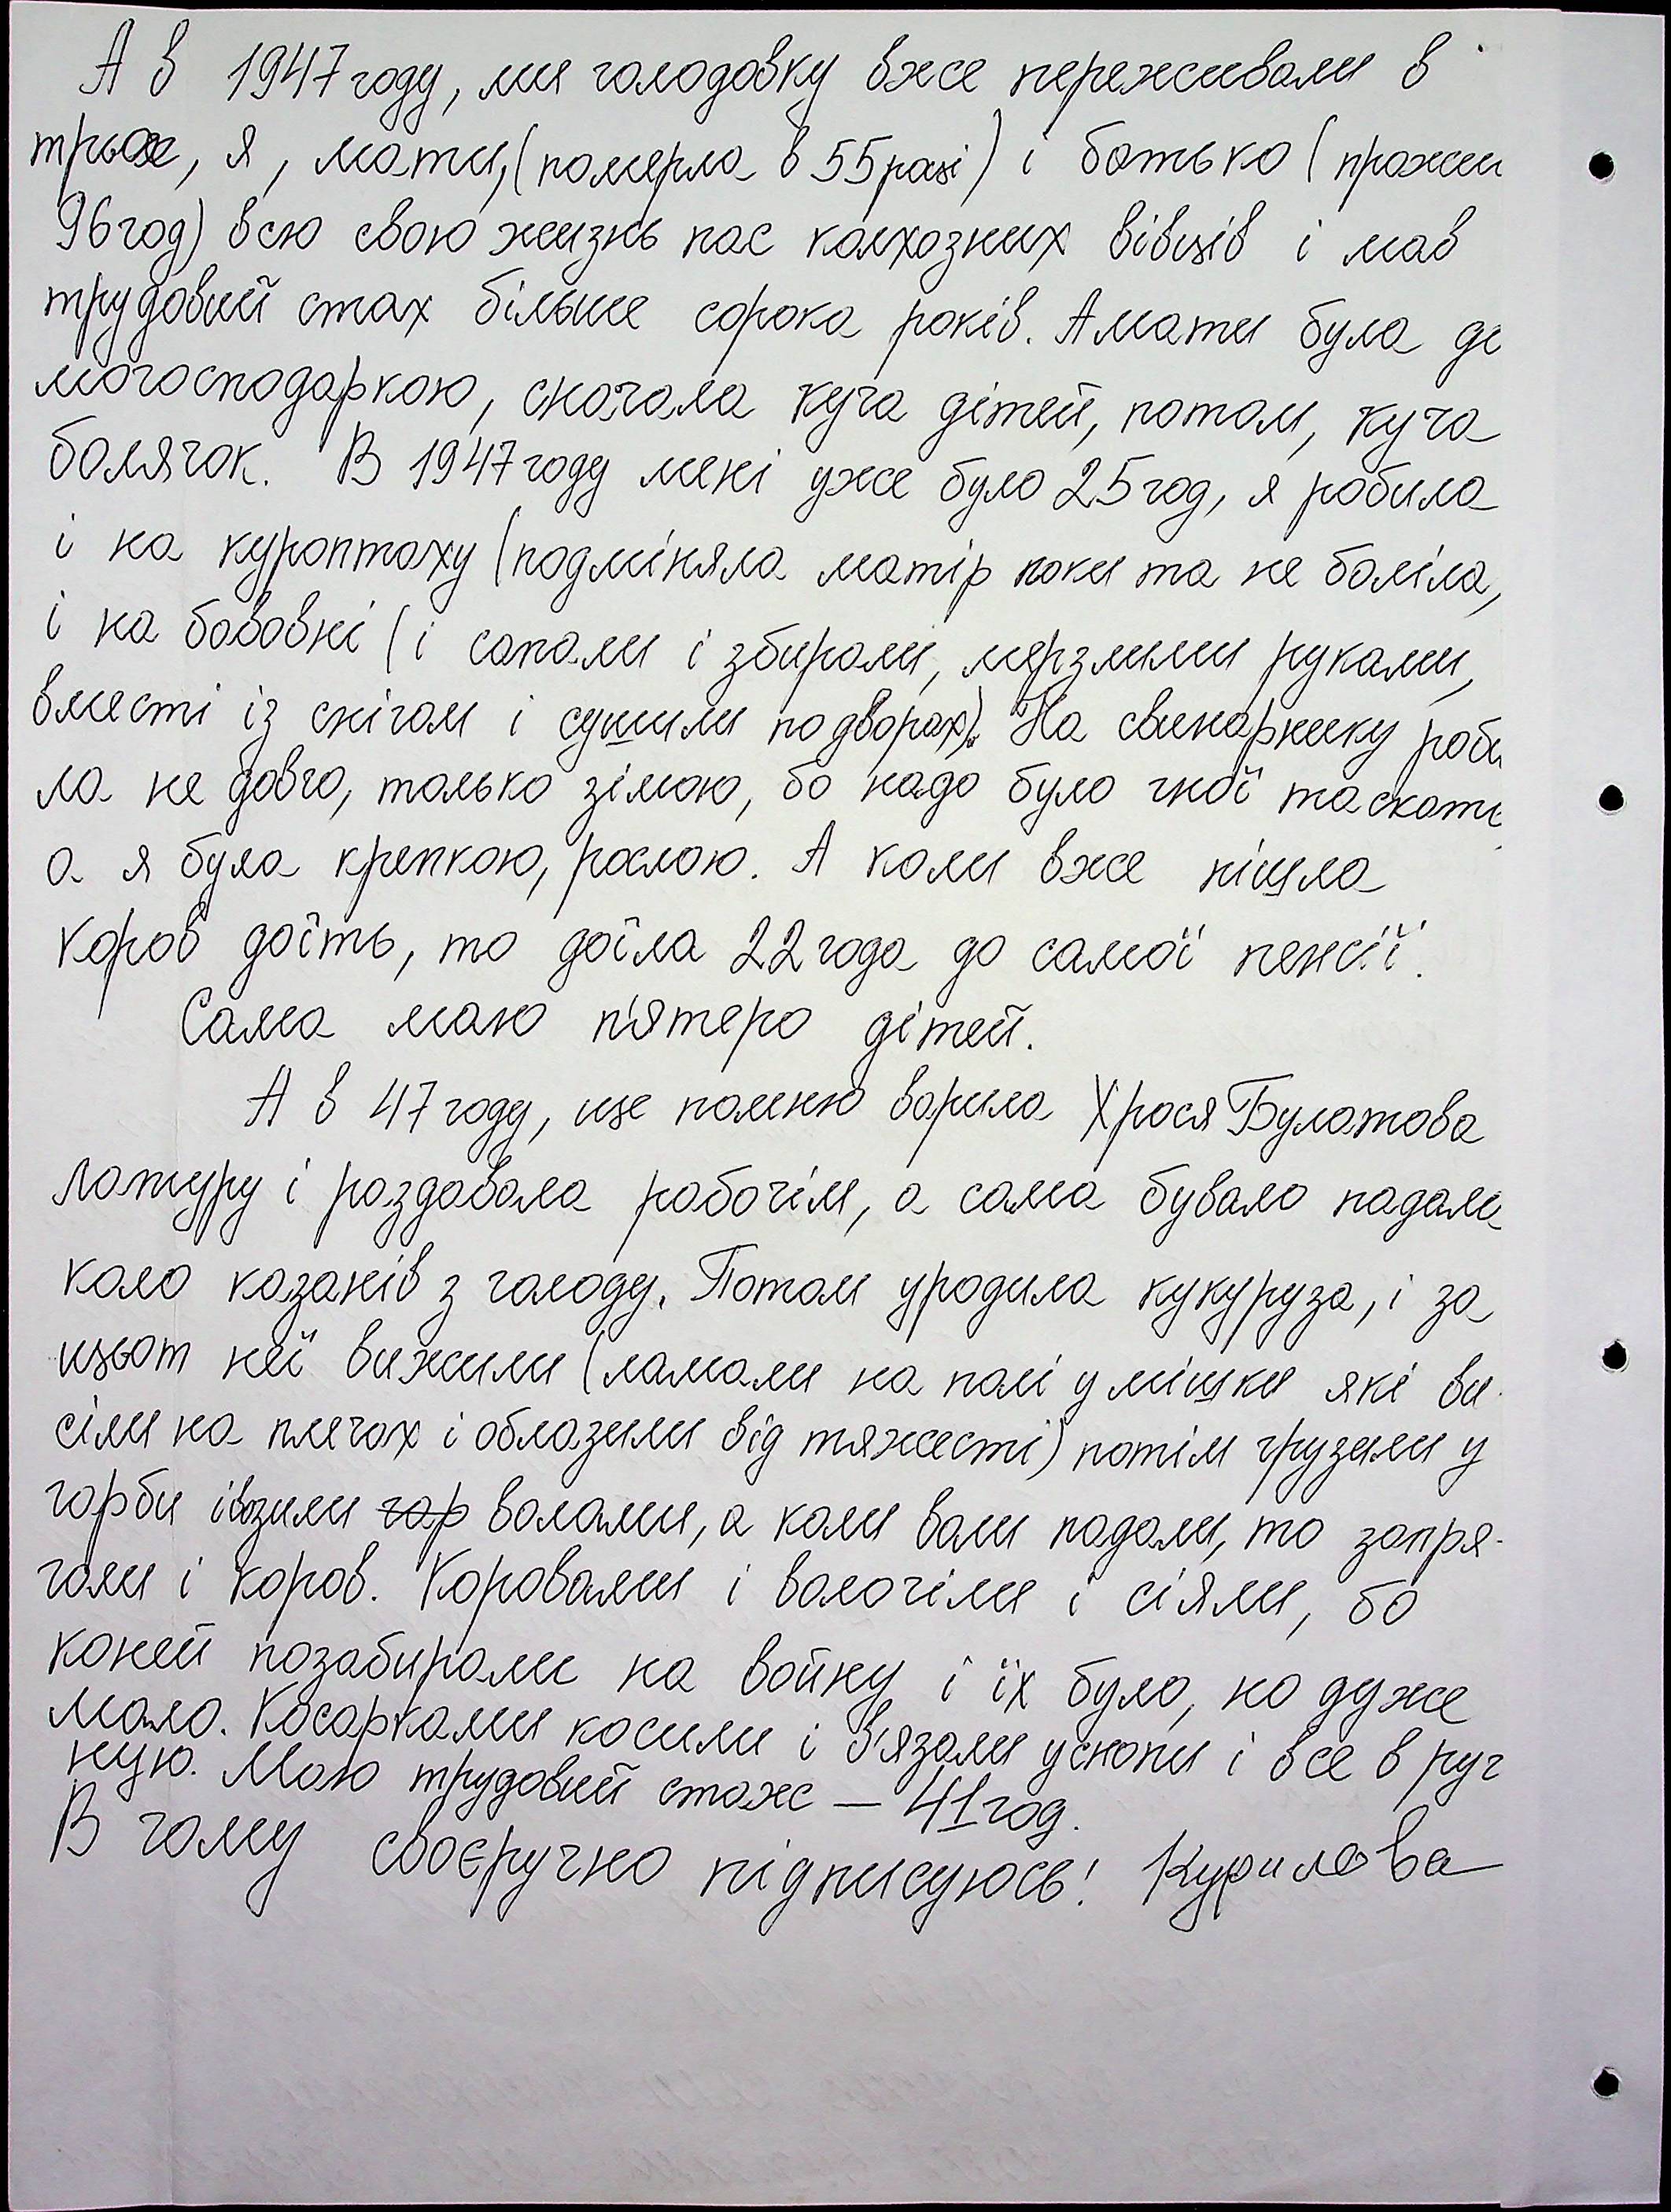 А в 1947 году, ми голодовку вже переживали в
трьох, я, мати, (померла в 55 році) і батько (прожи
96 год) всю свою жизнь пас колхозних вівців і мав
трудовий стах більше сорока років. А мати була до
могосподаркою, сначала куча дітей, потом, куча
болячок. В 1947 году мені уже було 25 год, я робила
і на куроптаху (подміняла матір поки та не боліла,
і на бововні (і сапали і збирали, мерзлими руками,
вместі із снігом і сушили по дворах). На свинарнику роби
ла не довго, только зімою, бо надо було гної таскати
а я була крепкою, рослою. А коли вже пішла
коров доїть, то доїла 22 года до самої пенсії.
Сама маю п'ятеро дітей.
А в 47 году, ще помню варила Хрося Булатова
латуру і роздавала робочім, а сама бувало падала
коло казанів з голоду. Потом уродила кукуруза, і за
щьот неї вижили (ламали на полі у мішки які ви
сіли на плечах і облазили від тяжесті) потім грузили у
гарби івозили гар волами, а коли воли падали, то запря-
гали і коров. Коровами і волочіли і сіяли, бо
коней позабирали на войну і їх було, но дуже
мало. Косарками косили і в'язали у снопи і все в руч
ную. Маю трудовий стаж — 41 год.
В чому своєручно підписуюсь! Курилова